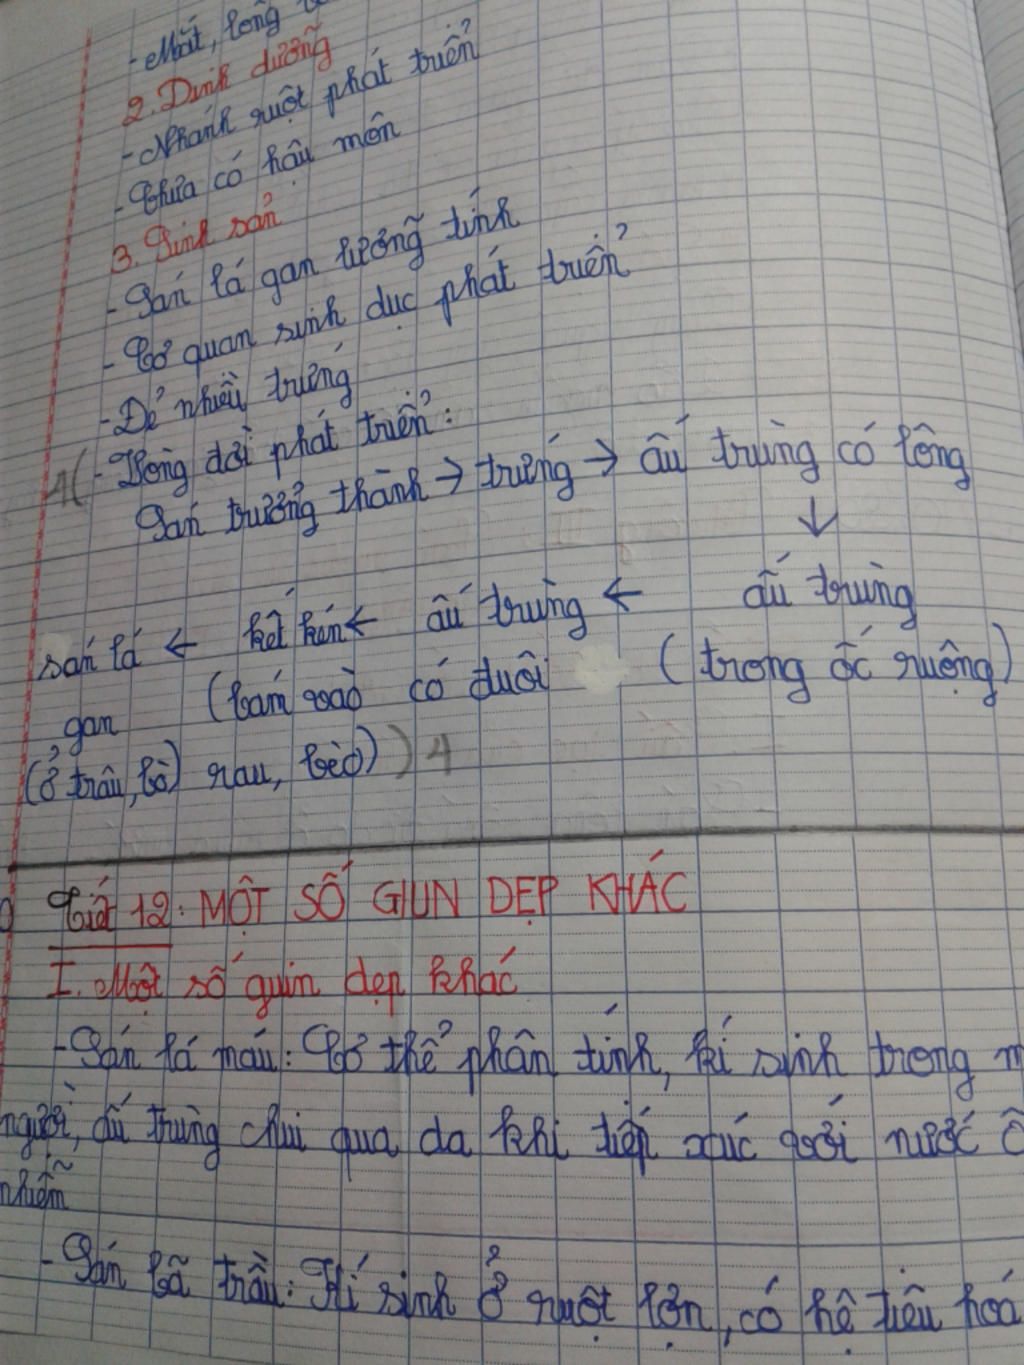 - Mắt, lông
2. Dinh dưỡng
- Nhánh ruột phát triển
- Chưa có hậu môn
3. Sinh sản
- Sán lá gan lưỡng tính
- Cơ quan sinh dục phát triển
- Đẻ nhiều trứng
- Vòng đời phát triển:
Sán trưởng thành → trứng → ấu trùng có lông
↓
sán lá ← kết kén ← ấu trùng ← ấu trùng
gan (bám vào có đuôi (trong ốc ruộng)
(ở trâu, bò) rau, bèo) ) 4
Tiết 12: MỘT SỐ GIUN DẸP KHÁC
I. Một số guin dẹp khác
- Sán lá máu: Cơ thể phân tính, kí sinh trong m
người, ấu trùng chui qua da khi tiếp xúc với nước ô
nhiễm
- Sán bã trầu: Kí sinh ở ruột lợn, có hệ tiêu hoá